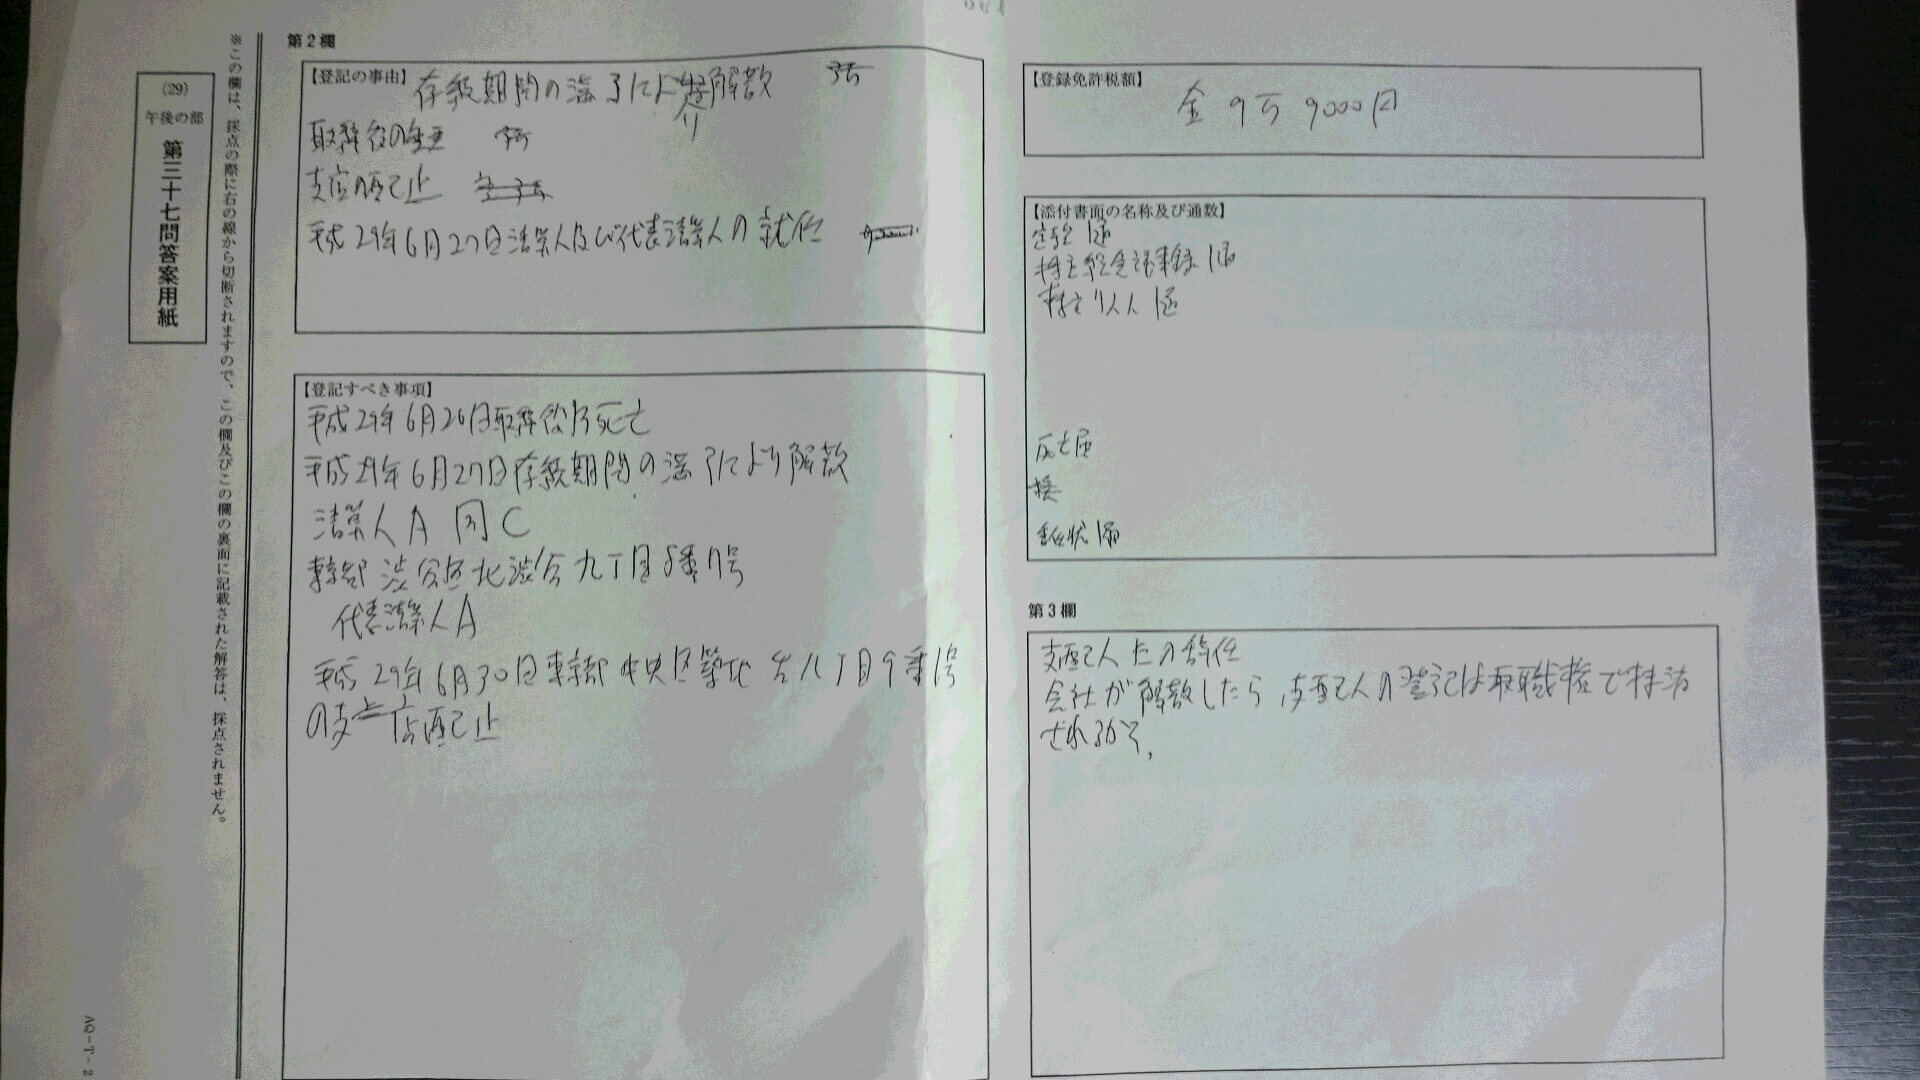 ※この欄は、採点の際に右の線から切断されますので、この欄及びこの欄の裏面に記載された解答は、採点されません。
(29)
午後の部
第三十七問答案用紙
第2欄
【登記の事由】
存続期間の満了による解散
取締役の変更
支店の廃止
平成29年6月27日清算人及び代表清算人の就任
【登記すべき事項】
平成29年6月26日取締役B死亡
平成29年6月27日存続期間の満了により解散
清算人A 同C
東京都渋谷区北渋谷九丁目8番7号
代表清算人A
平成29年6月30日東京都中央区築地 八丁目9番1号
の支店廃止
【登録免許税額】
金9万9000円
【添付書面の名称及び通数】
定款1通
株主総会議事録1通
株主リスト1通
死亡届
委任状1通
第3欄
支配人Eの辞任
会社が解散したら、支配人の登記は職権で抹消
されるから。
AQ-T-2